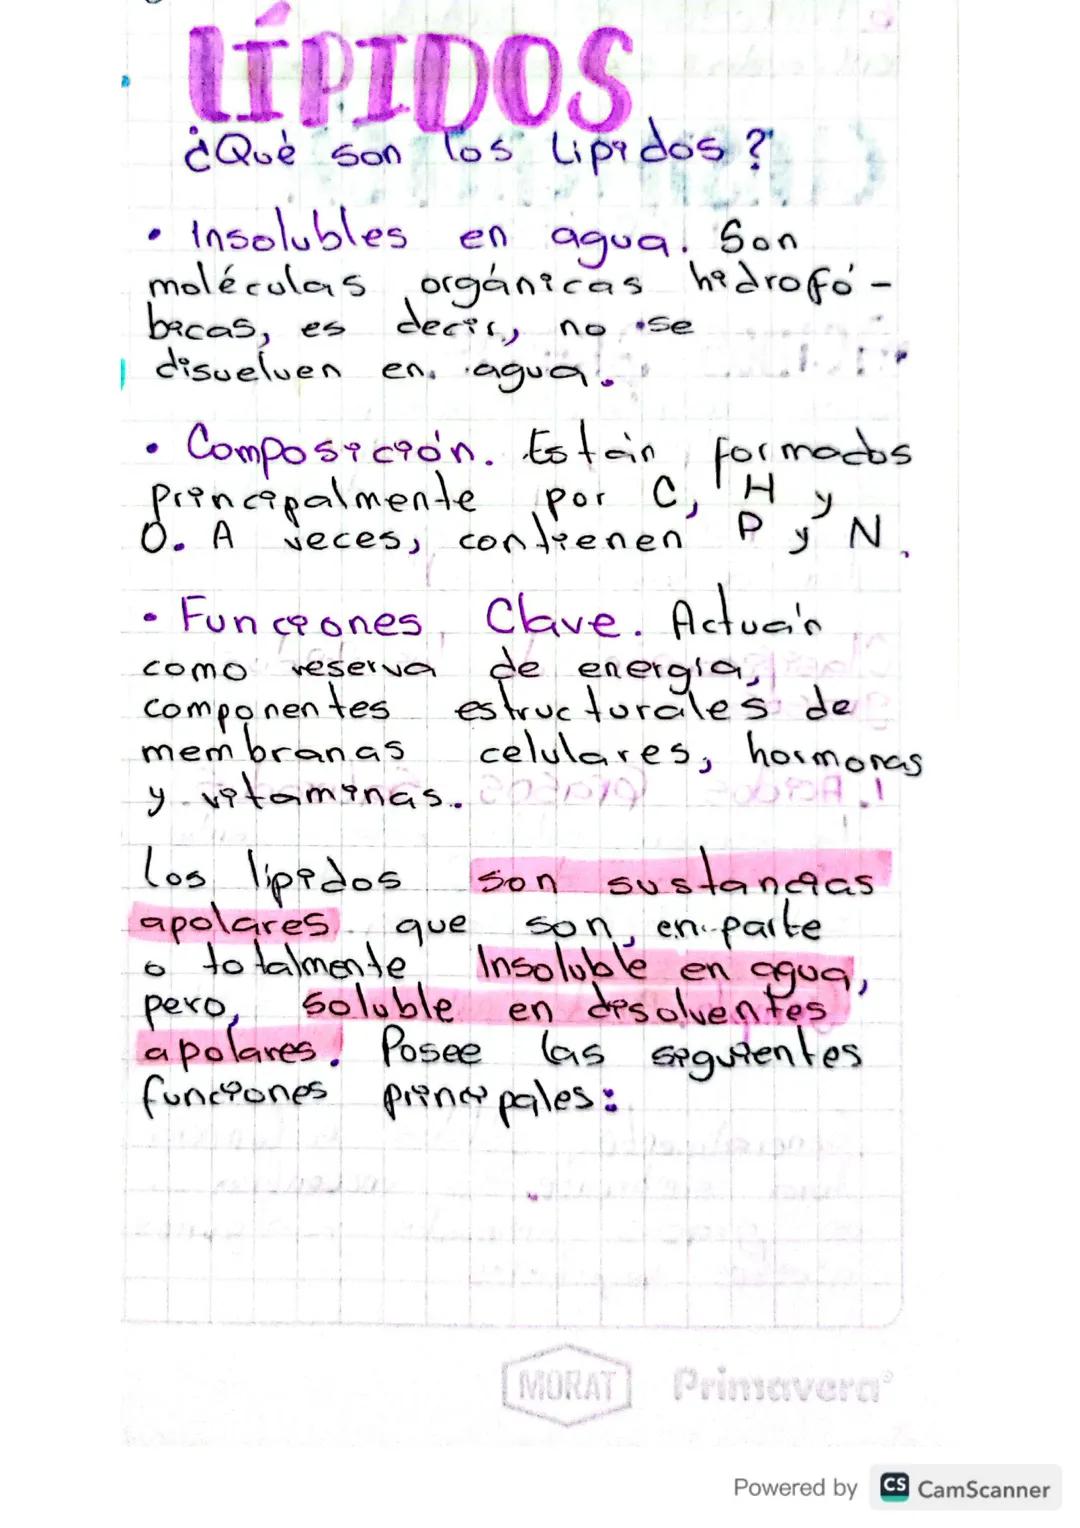 LÍPIDOS
¿Qué son los Lipidos?
• Insolubles en agua. Son
moléculas orgánicas hidrofó-
bicas, es decir, no se
disuelven en agua.
• Composición. Están formados
principalmente por C, H y
O. A veces, contienen P y N.
• Funciones Clave. Actuán
como reserva de energía,
componentes estructurales de
membranas celulares, hormonas
y vitaminas.
Los lipidos son sustancias
apolares que son, en parte
o totalmente Insoluble en agua,
pero, soluble en disolventes
apolares. Posee las siguientes
funciones principales:
MORAT Primavera®
Powered by CS CamScanner